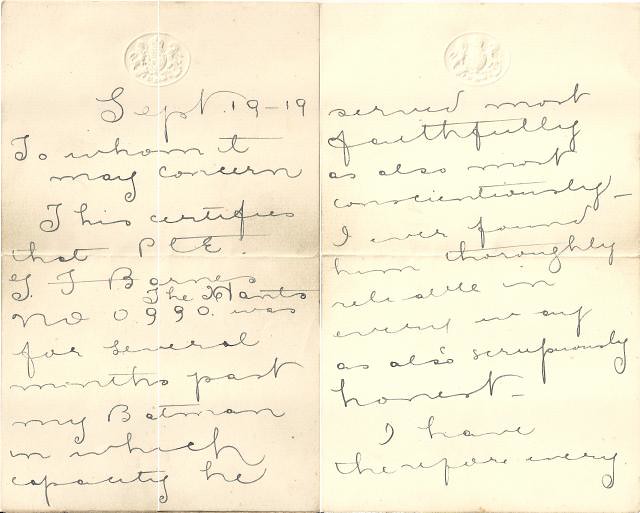 Sept. 19-19
To whom it
may concern
This certifies
that Pte.
G. F Barnes
The Hants
No 0990. was
for several
months past
my Batman
in which
capacity he
served most
faithfully
as also most
conscientiously-
I ever found
him thoroughly
reliable in
every way
as also scrupuously
honest-
I have
therefore every